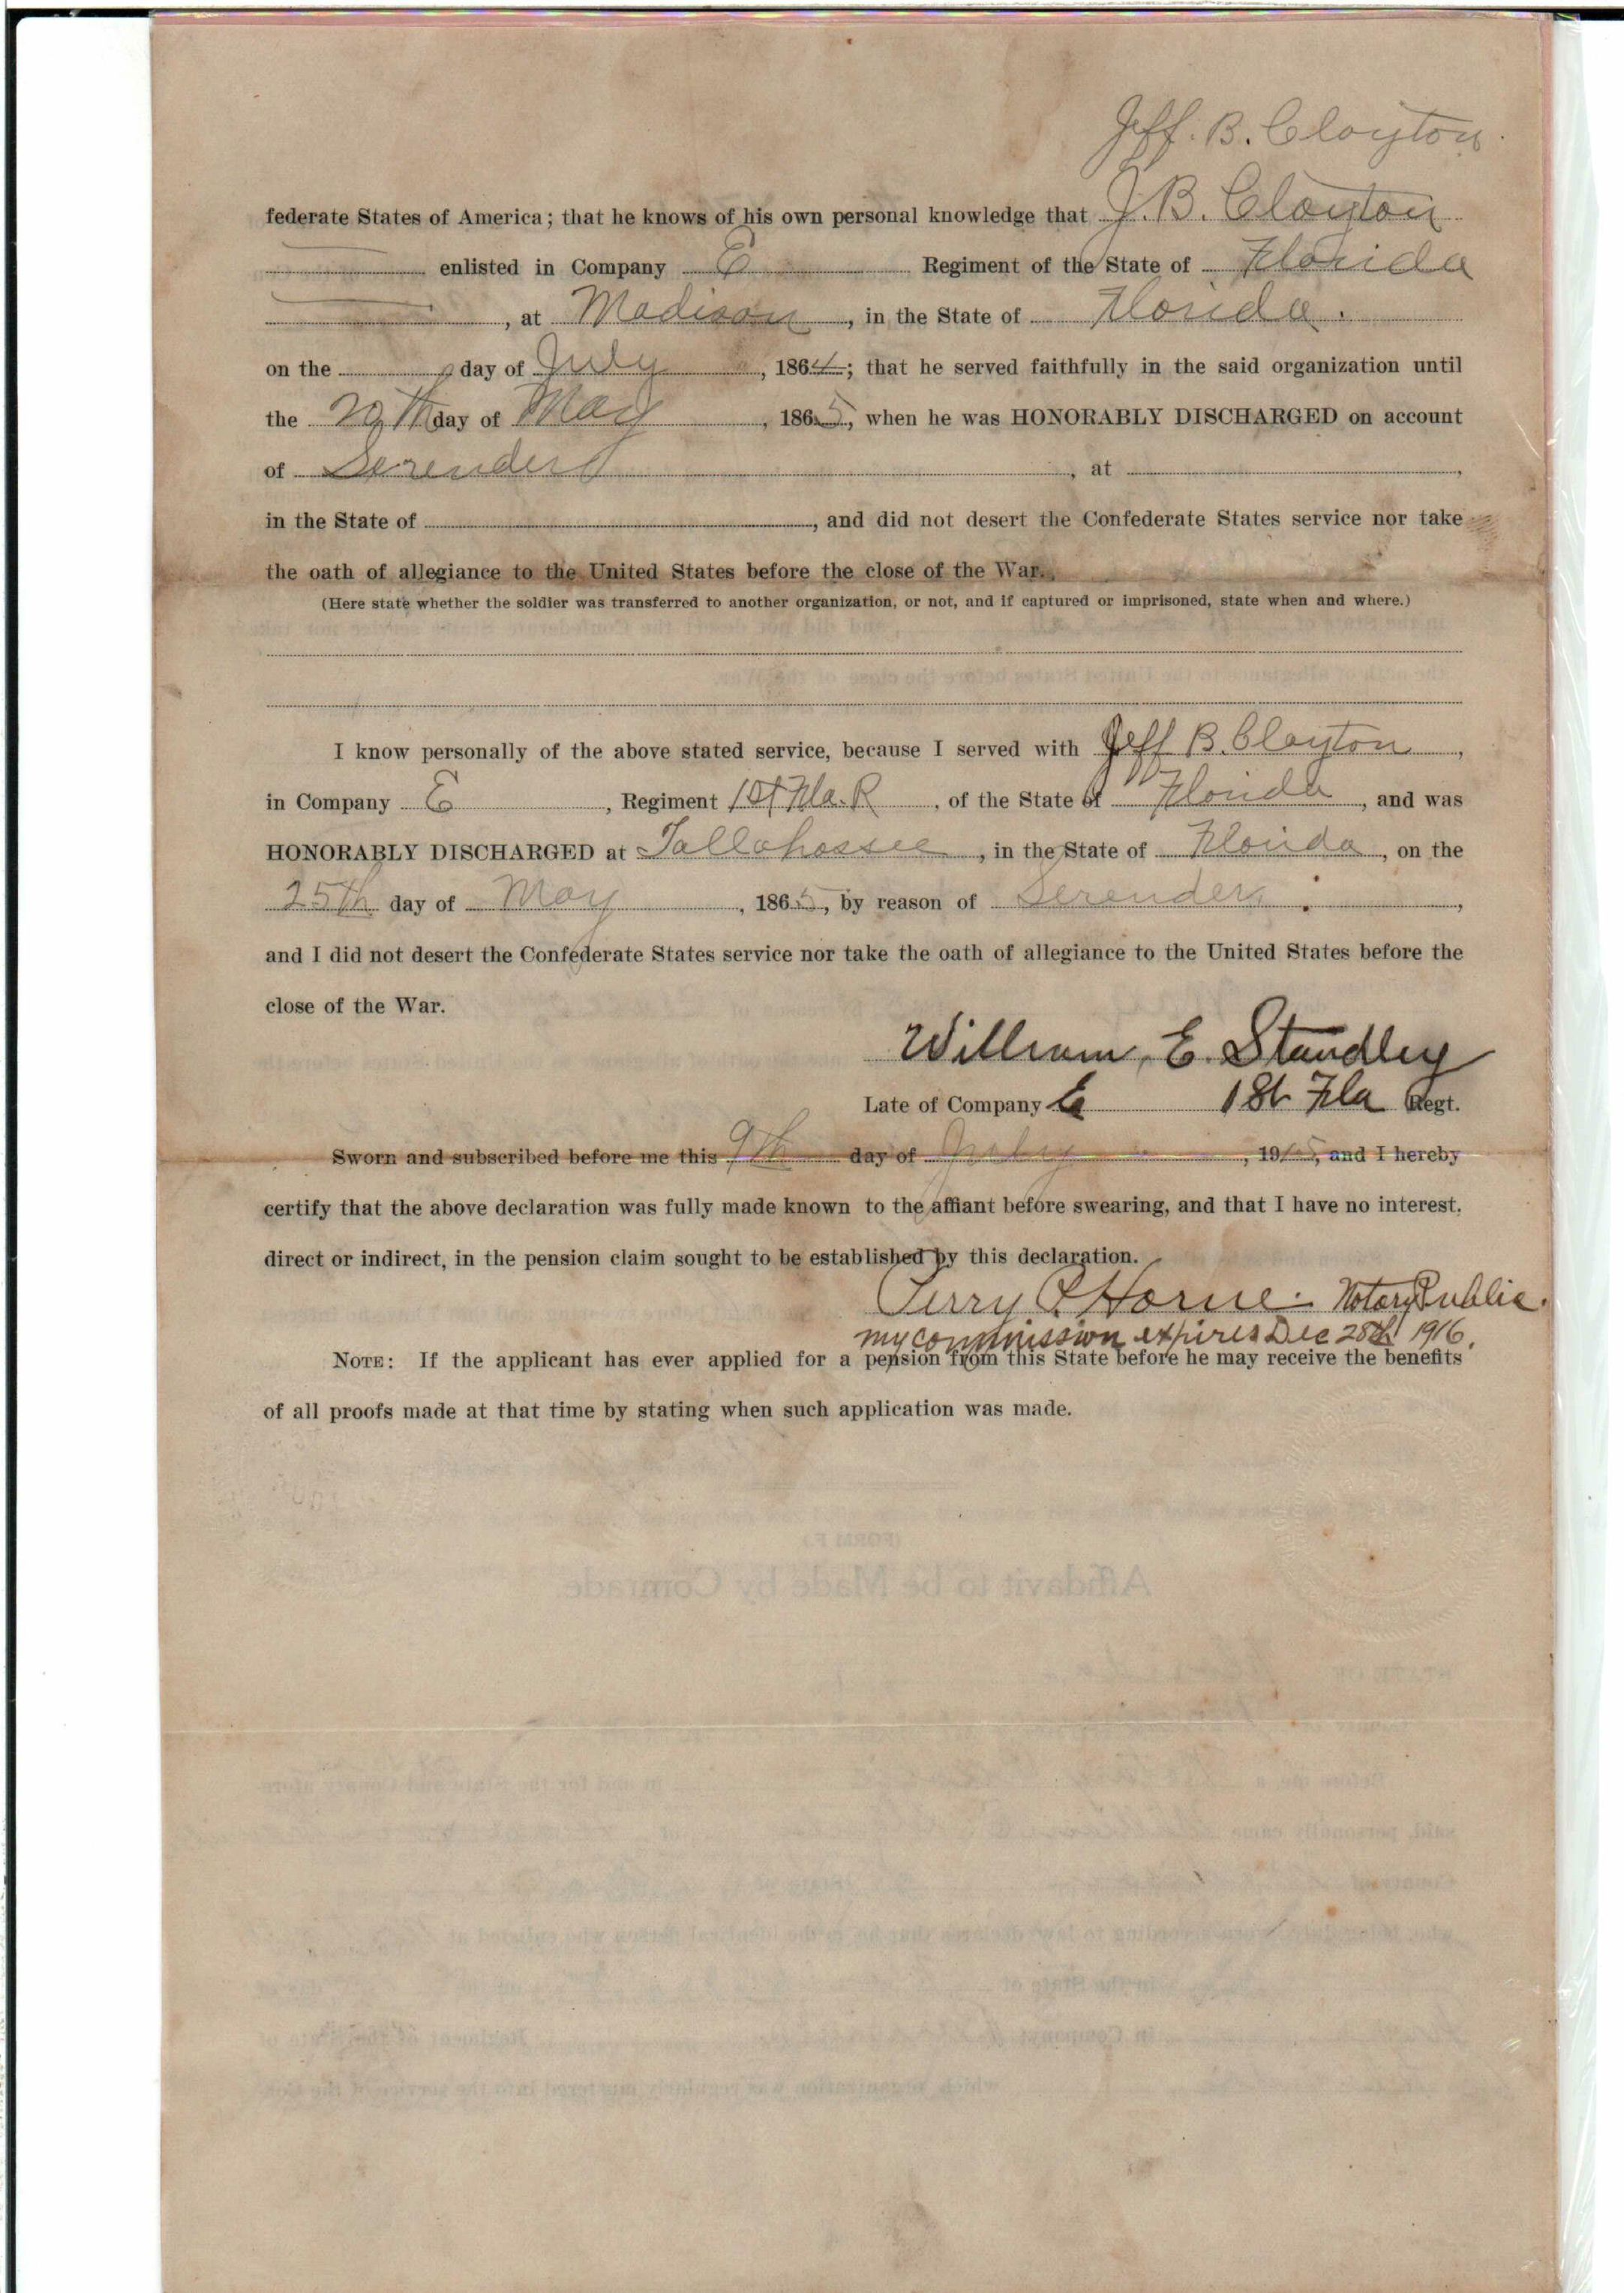 Jeff. B. Clayton.
federate States of America; that he knows of his own personal knowledge that J. B. Clayton
enlisted in Company E Regiment of the State of Florida
, at Madison, in the State of Florida.
on the day of July, 1864; that he served faithfully in the said organization until
the 20th day of May, 1865, when he was HONORABLY DISCHARGED on account
of Serender, at ,
in the State of , and did not desert the Confederate States service nor take
the oath of allegiance to the United States before the close of the War.
(Here state whether the soldier was transferred to another organization, or not, and if captured or imprisoned, state when and where.)
I know personally of the above stated service, because I served with Jeff B. Clayton,
in Company E, Regiment 1st Fla. R, of the State of Florida, and was
HONORABLY DISCHARGED at Tallahassee, in the State of Florida, on the
25th day of May, 1865, by reason of Serender,
and I did not desert the Confederate States service nor take the oath of allegiance to the United States before the
close of the War.
William E. Standley
Late of Company E 1st Fla Regt.
Sworn and subscribed before me this 9th day of July, 1915, and I hereby
certify that the above declaration was fully made known to the affiant before swearing, and that I have no interest,
direct or indirect, in the pension claim sought to be established by this declaration.
Perry Horne. Notary Public.
my commission expires Dec 28th 1916.
NOTE: If the applicant has ever applied for a pension from this State before he may receive the benefits
of all proofs made at that time by stating when such application was made.
(FORM F.)
Affidavit to be Made by Comrade